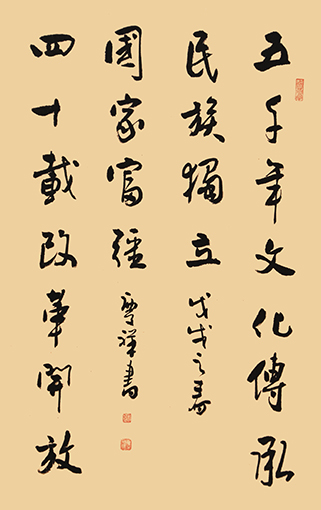 五千年文化傳承
民族獨立 戊戌之春
國家富強 祥書
四十載改革開放